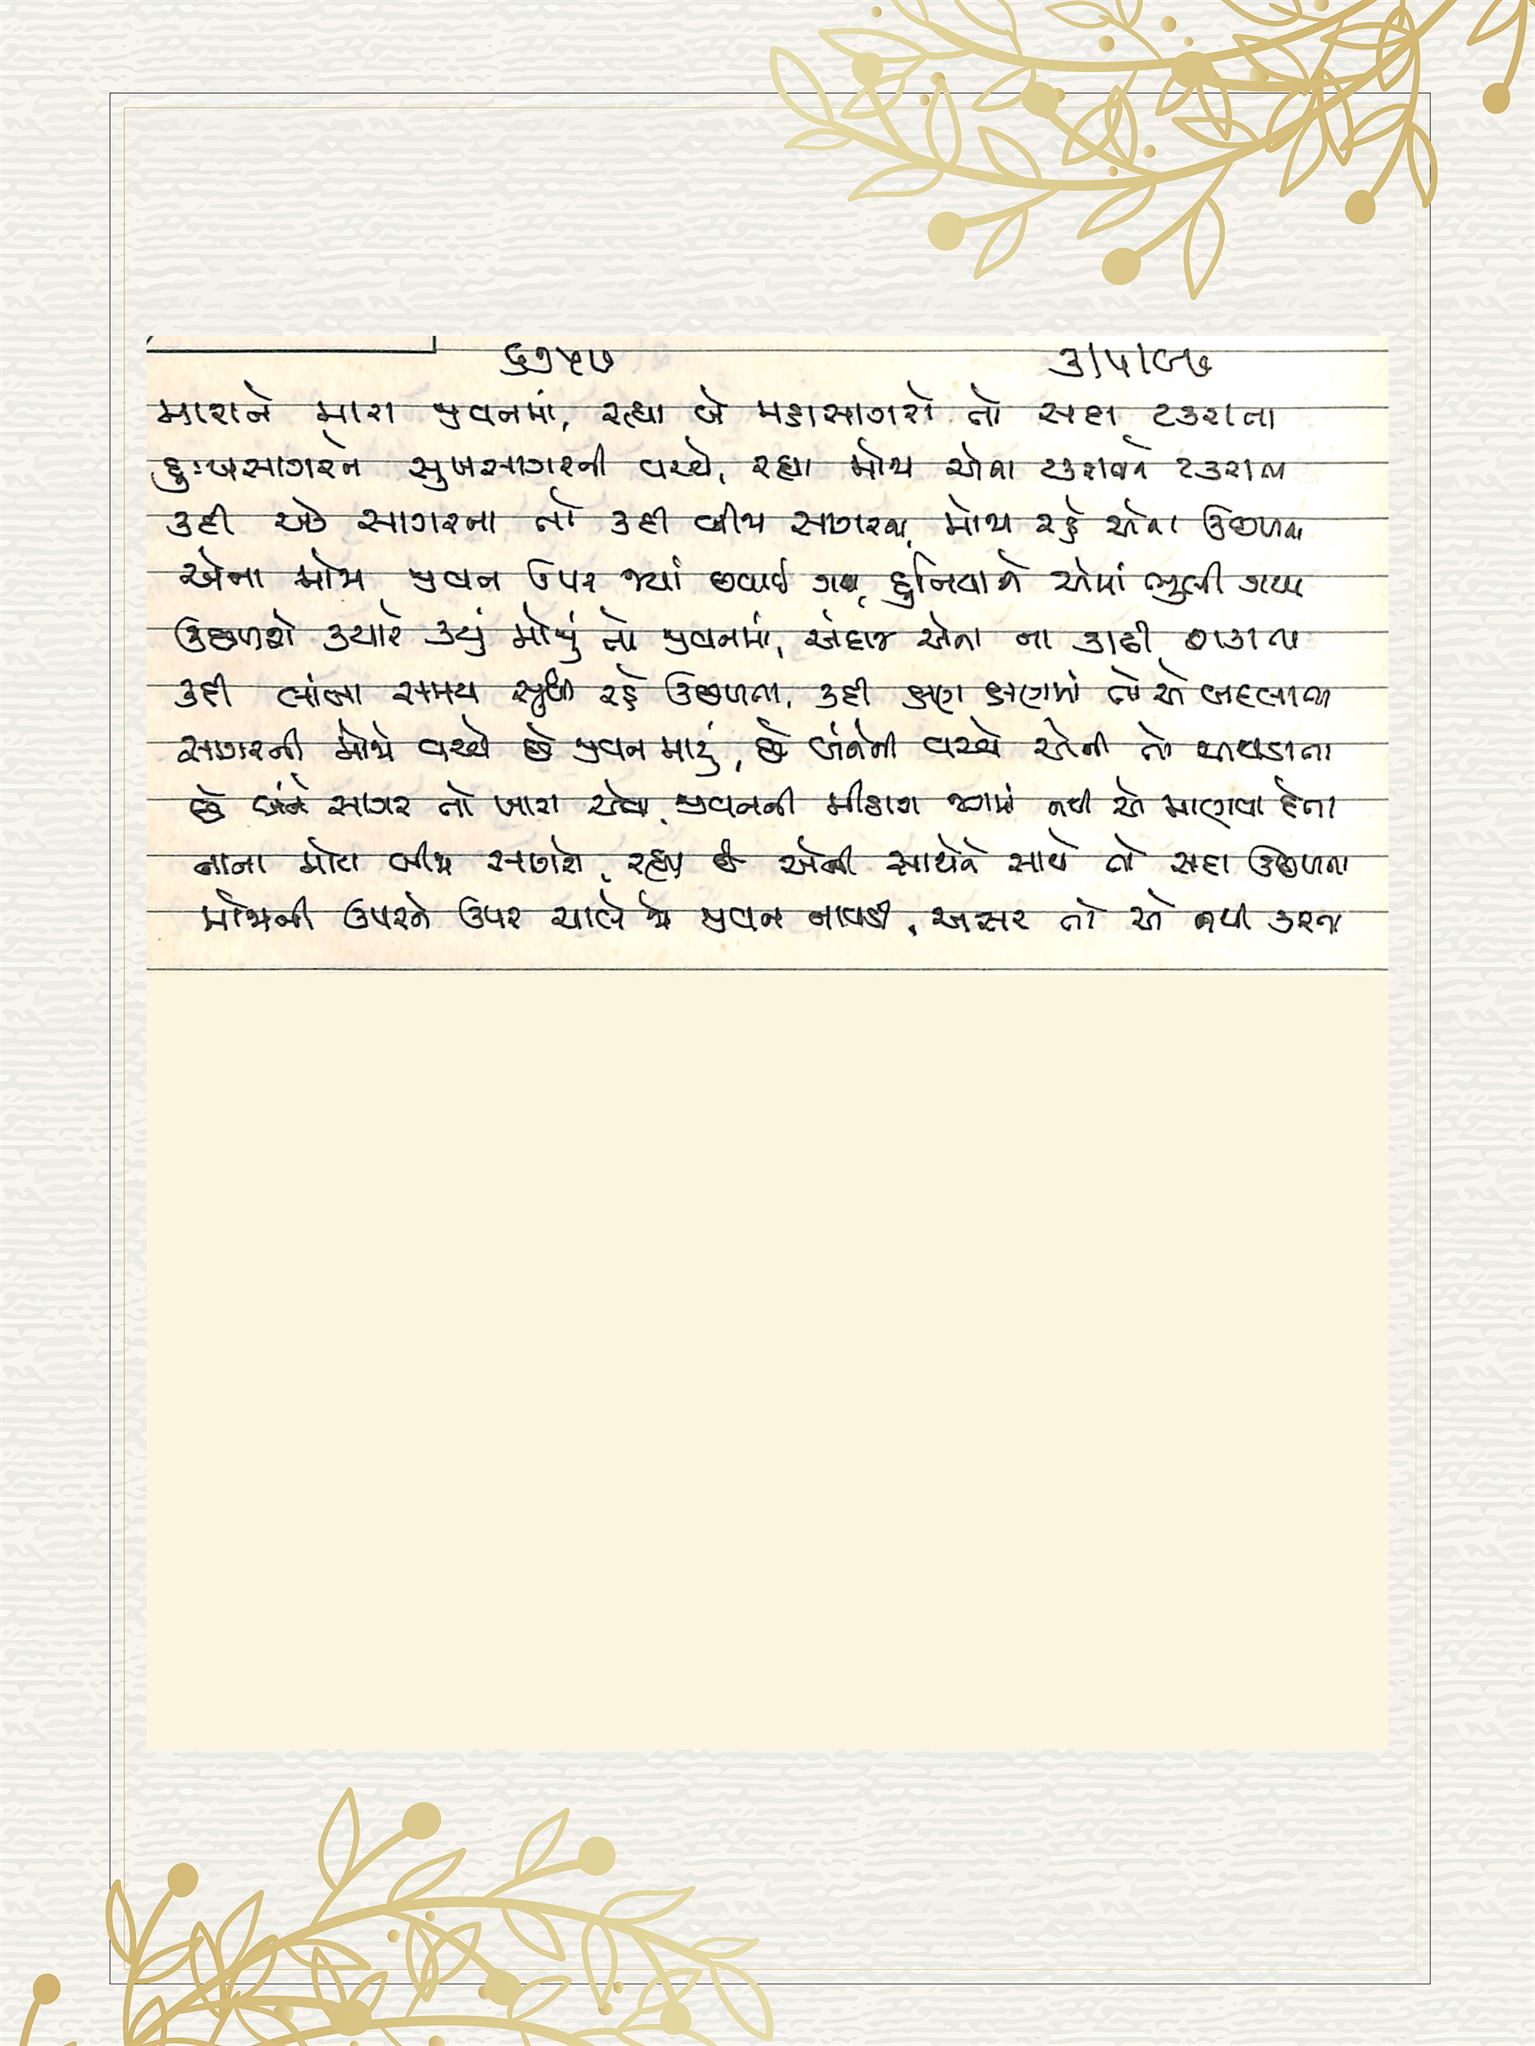 ૬૭૫૭ ૩/૫/૯૭
મારાને મારા જીવનમાં, રહ્યા બે મહાસાગરો તો સદા ટકરાતા
દુઃખસાગરને સુખસાગરની વચ્ચે, રહ્યા મોજા એના ટકરાવને ટકરાતા
કદી એક સાગરના તો કદી બીજા સાગરના, મોજા રહે એના ઉછળતા
એના મોજા જીવન ઉપર જ્યાં છવાઈ ગયા, દુનિયાને એમાં ભુલી ગયા
ઉછળશે ક્યારે કયું મોજું તો જીવનમાં, અંદાજ એના ના કાઢી શકાતા
કદી લાંબા સમય સુધી રહે ઉછળતા, કદી ક્ષણ ક્ષણમાં તો એ બદલાતા
સાગરની મોજે વચ્ચે છે જીવન મારું, છે બંનેની વચ્ચે એની તો
છે બંને સાગર તો ખારા એવા, જીવનની મીઠાશ જગમાં નથી એ માણવા દેતા
નાના મોટા બીજા સાગરો, રહ્યા છે એની સાથેને સાથે તો સદા ઉછળતા
મોજાની ઉપરને ઉપર ચાલે જે જીવન નાવડી, અસર તો એ નથી કરતા